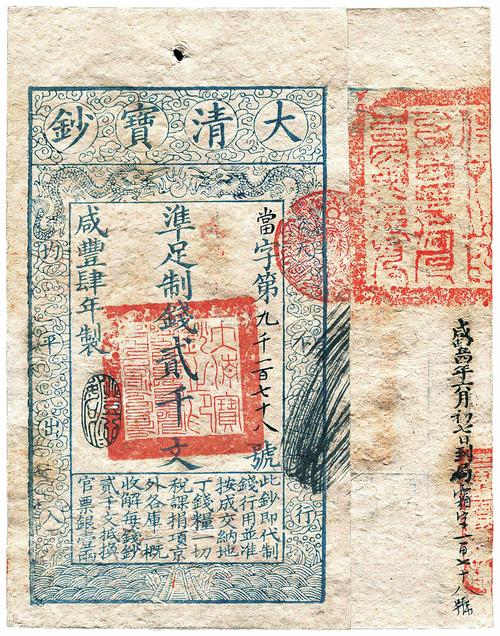 大清寶鈔
天下行
當字第九千一百七十八號
準足制錢貳千文
咸豐肆年製
均平出入
此鈔即代制
錢行用並准
按成交納地
丁錢糧一切
稅課捐項京
外各庫一概
收解每錢鈔
貳千文抵換
官票銀壹兩
大清寶鈔之印
咸豐年月初日到局字一百七十八號